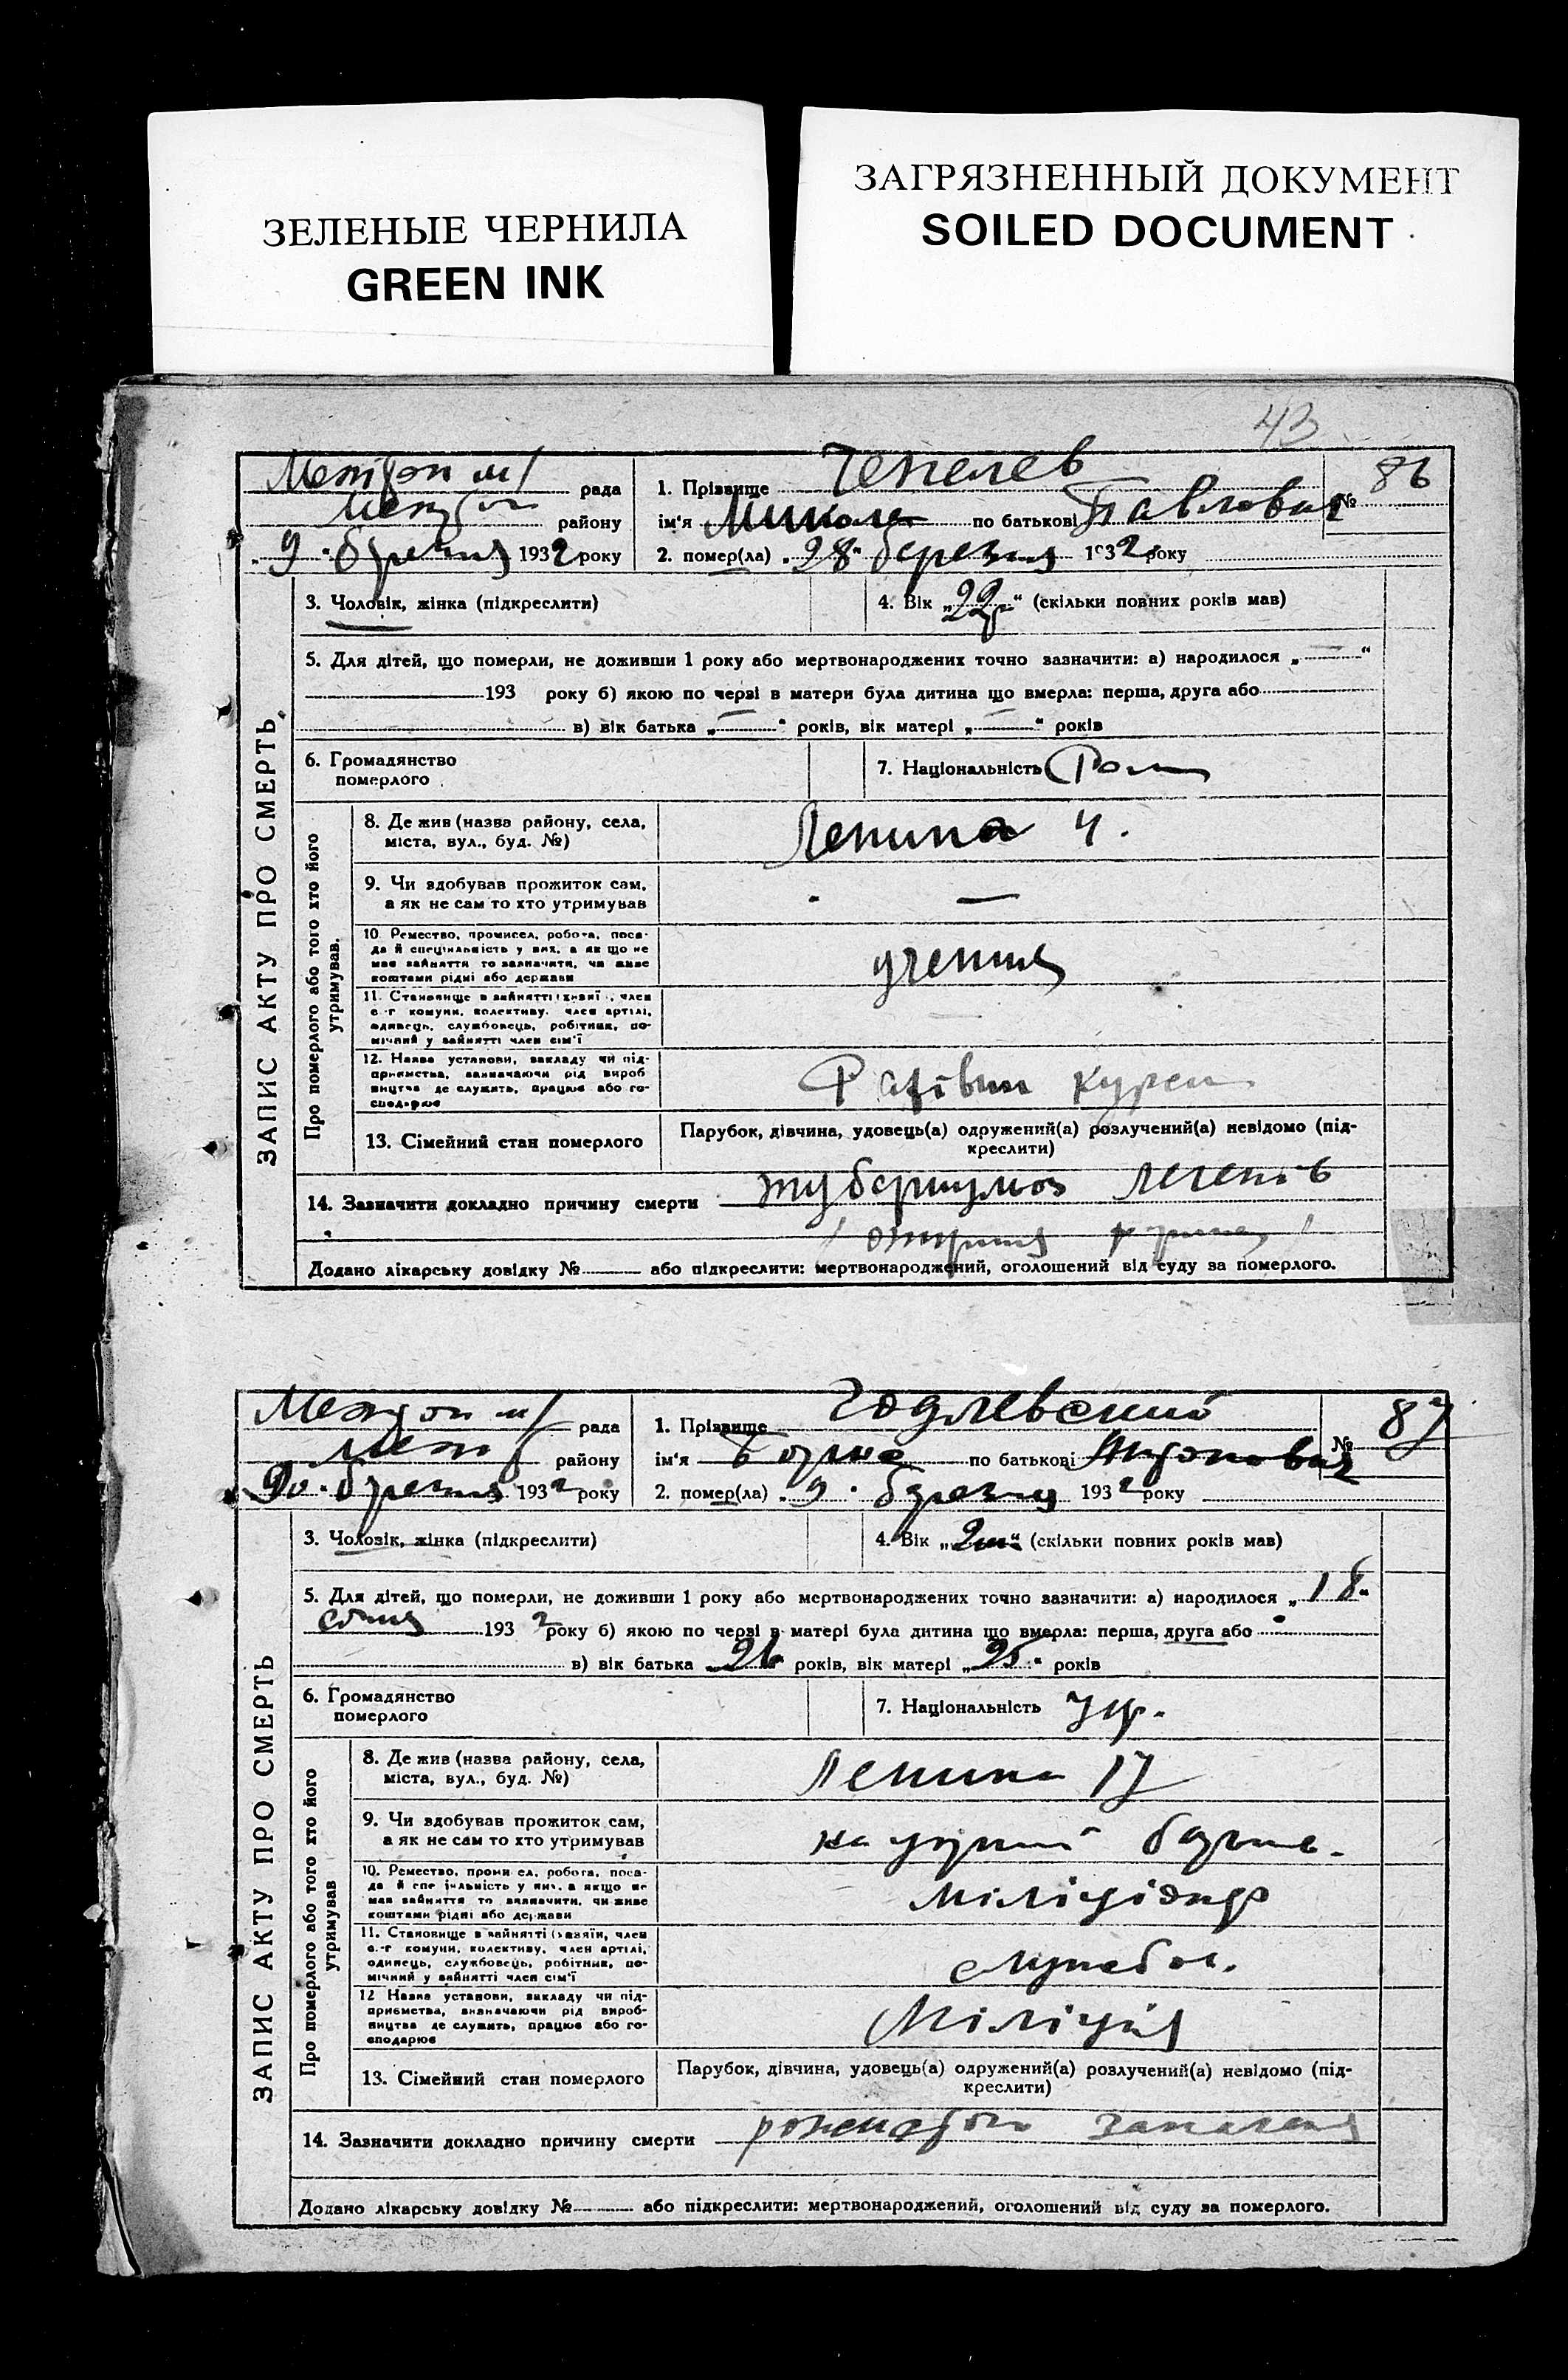 ЗЕЛЕНЫЕ ЧЕРНИЛА
GREEN INK
ЗАГРЯЗНЕННЫЙ ДОКУМЕНТ
SOILED DOCUMENT
43
рада
району
9 березня 1932 року
1. Прізвище Чепелев
№ 86
ім'я Микола по батькові Павлович
2. помер(ла) „28“ березня 1932 року
ЗАПИС АКТУ ПРО СМЕРТЬ
3. Чоловік, жінка (підкреслити)
4. Вік „22“ (скільки повних років мав)
5. Для дітей, що померли, не доживши 1 року або мертвонароджених точно зазначити: а) народилося „ “
193 року б) якою по черзі в матери була дитина що вмерла: перша, друга або
в) вік батька „ “ років, вік матері „ “ років
6. Громадянство
померлого
7. Національність
Про померлого або того хто його
утримував.
8. Де жив (назва району, села,
міста, вул., буд. №)
Ленина 4.
9. Чи здобував прожиток сам,
а як не сам то хто утримував
—
10. Ремество, промисел, робота, поса-
да й спеціяльність у них, а як що не
мав зайняття то зазначити, чи живе
коштами рідні або держави
11. Становище в зайнятті (хазяї, член
с.-г комуни, колективу, член артілі,
одинець, службовець, робітник, по-
мічний у зайнятті член сім'ї
12. Назва установи, закладу чи під-
приємства, зазначаючи рід вироб
ництва де служить, працює або го-
сподарює
13. Сімейний стан померлого
Парубок, дівчина, удовець(а) одружений(а) розлучений(а) невідомо (під-
креслити)
14. Зазначити докладно причину смерти туберкульоз легенів
Додано лікарську довідку № або підкреслити: мертвонароджений, оголошений від суду за померлого.
рада
району
березня 1932 року
1. Прізвище Годлевський
№ 87
ім'я по батькові
2. помер(ла) „9“ березня 1932 року
ЗАПИС АКТУ ПРО СМЕРТЬ
3. Чоловік, жінка (підкреслити)
4. Вік „2м“ (скільки повних років мав)
5. Для дітей, що померли, не доживши 1 року або мертвонароджених точно зазначити: а) народилося „18“
січня 1932 року б) якою по черзі в матері була дитина що вмерла: перша, друга або
в) вік батька „26“ років, вік матері „25“ років
6. Громадянство
померлого
7. Національність Укр.
Про померлого або того хто його
утримував
8. Де жив (назва району, села,
міста, вул., буд. №)
Ленина 17
9. Чи здобував прожиток сам,
а як не сам то хто утримував
10. Ремество, промисел, робота, поса-
да й спеціяльність у них, а якщо не
мав зайняття то зазначити, чи живе
коштами рідні або держави
міліціонер
11. Становище в зайнятті (хазяїн, член
с.-г комуни, колективу, член артілі,
одинець, службовець, робітник, по-
мічний у зайнятті член сім'ї
службов.
12 Назва установи, закладу чи під-
приємства, зазначаючи рід вироб-
ництва де служить, працює або го-
сподарює
Міліція
13. Сімейний стан померлого
Парубок, дівчина, удовець(а) одружений(а) розлучений(а) невідомо (під-
креслити)
14. Зазначити докладно причину смерти запалення
Додано лікарську довідку № або підкреслити: мертвонароджений, оголошений від суду за померлого.